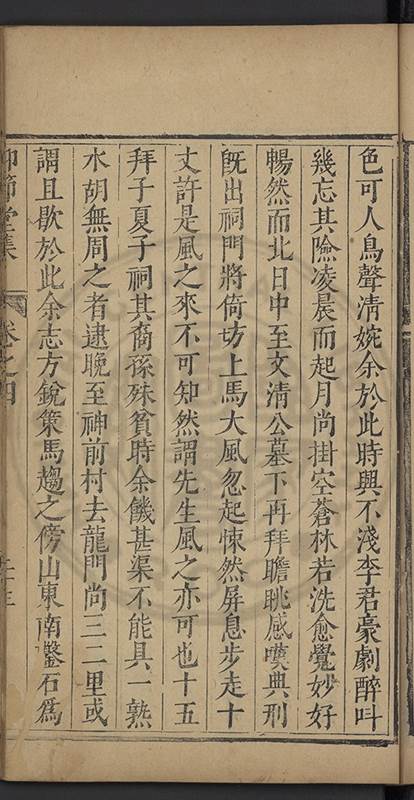 色可人鳥聲清婉余於此時興不淺李君豪劇醉呌
幾忘其險凌晨而起月尚掛空蒼林若洗愈覺妙好
暢然而北日中至文清公墓下再拜瞻眺感嘆典刑
旣出祠門將倚坊上馬大風忽起悚然屏息步走十
丈許是風之來不可知然謂先生風之亦可也十五
拜子夏子祠其裔孫殊貧時余饑甚渠不能具一熟
水胡無周之者逮晚至神前村去龍門尚三二里或
謂且歇於此余志方銳策馬趨之傍山東南鑿石爲
仰節堂集 卷之四